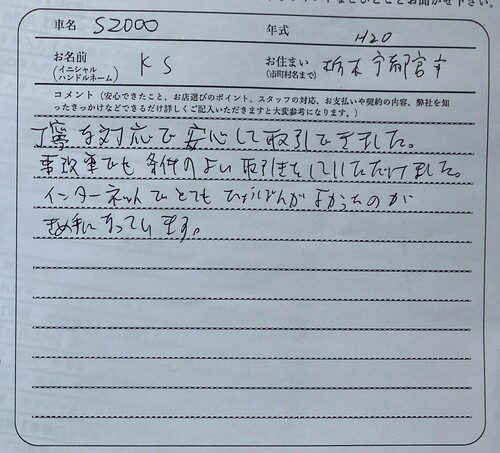 お聞かせ下さい。
車名 S2000 年式 H20
お名前 (イニシャル ハンドルネーム) K S お住まい (市町村名まで) 栃木 宇都宮市
コメント（安心できたこと、お店選びのポイント、スタッフの対応、お支払いや契約の内容、弊社を知
ったきっかけなどできるだけ詳しくご記入いただきますと大変参考になります。）
丁寧な対応で安心して取引できました。
事故車でも条件のよい取引きをしていただけました。
インターネットでとてもひょうばんがよかったのが
きめ手になっています。